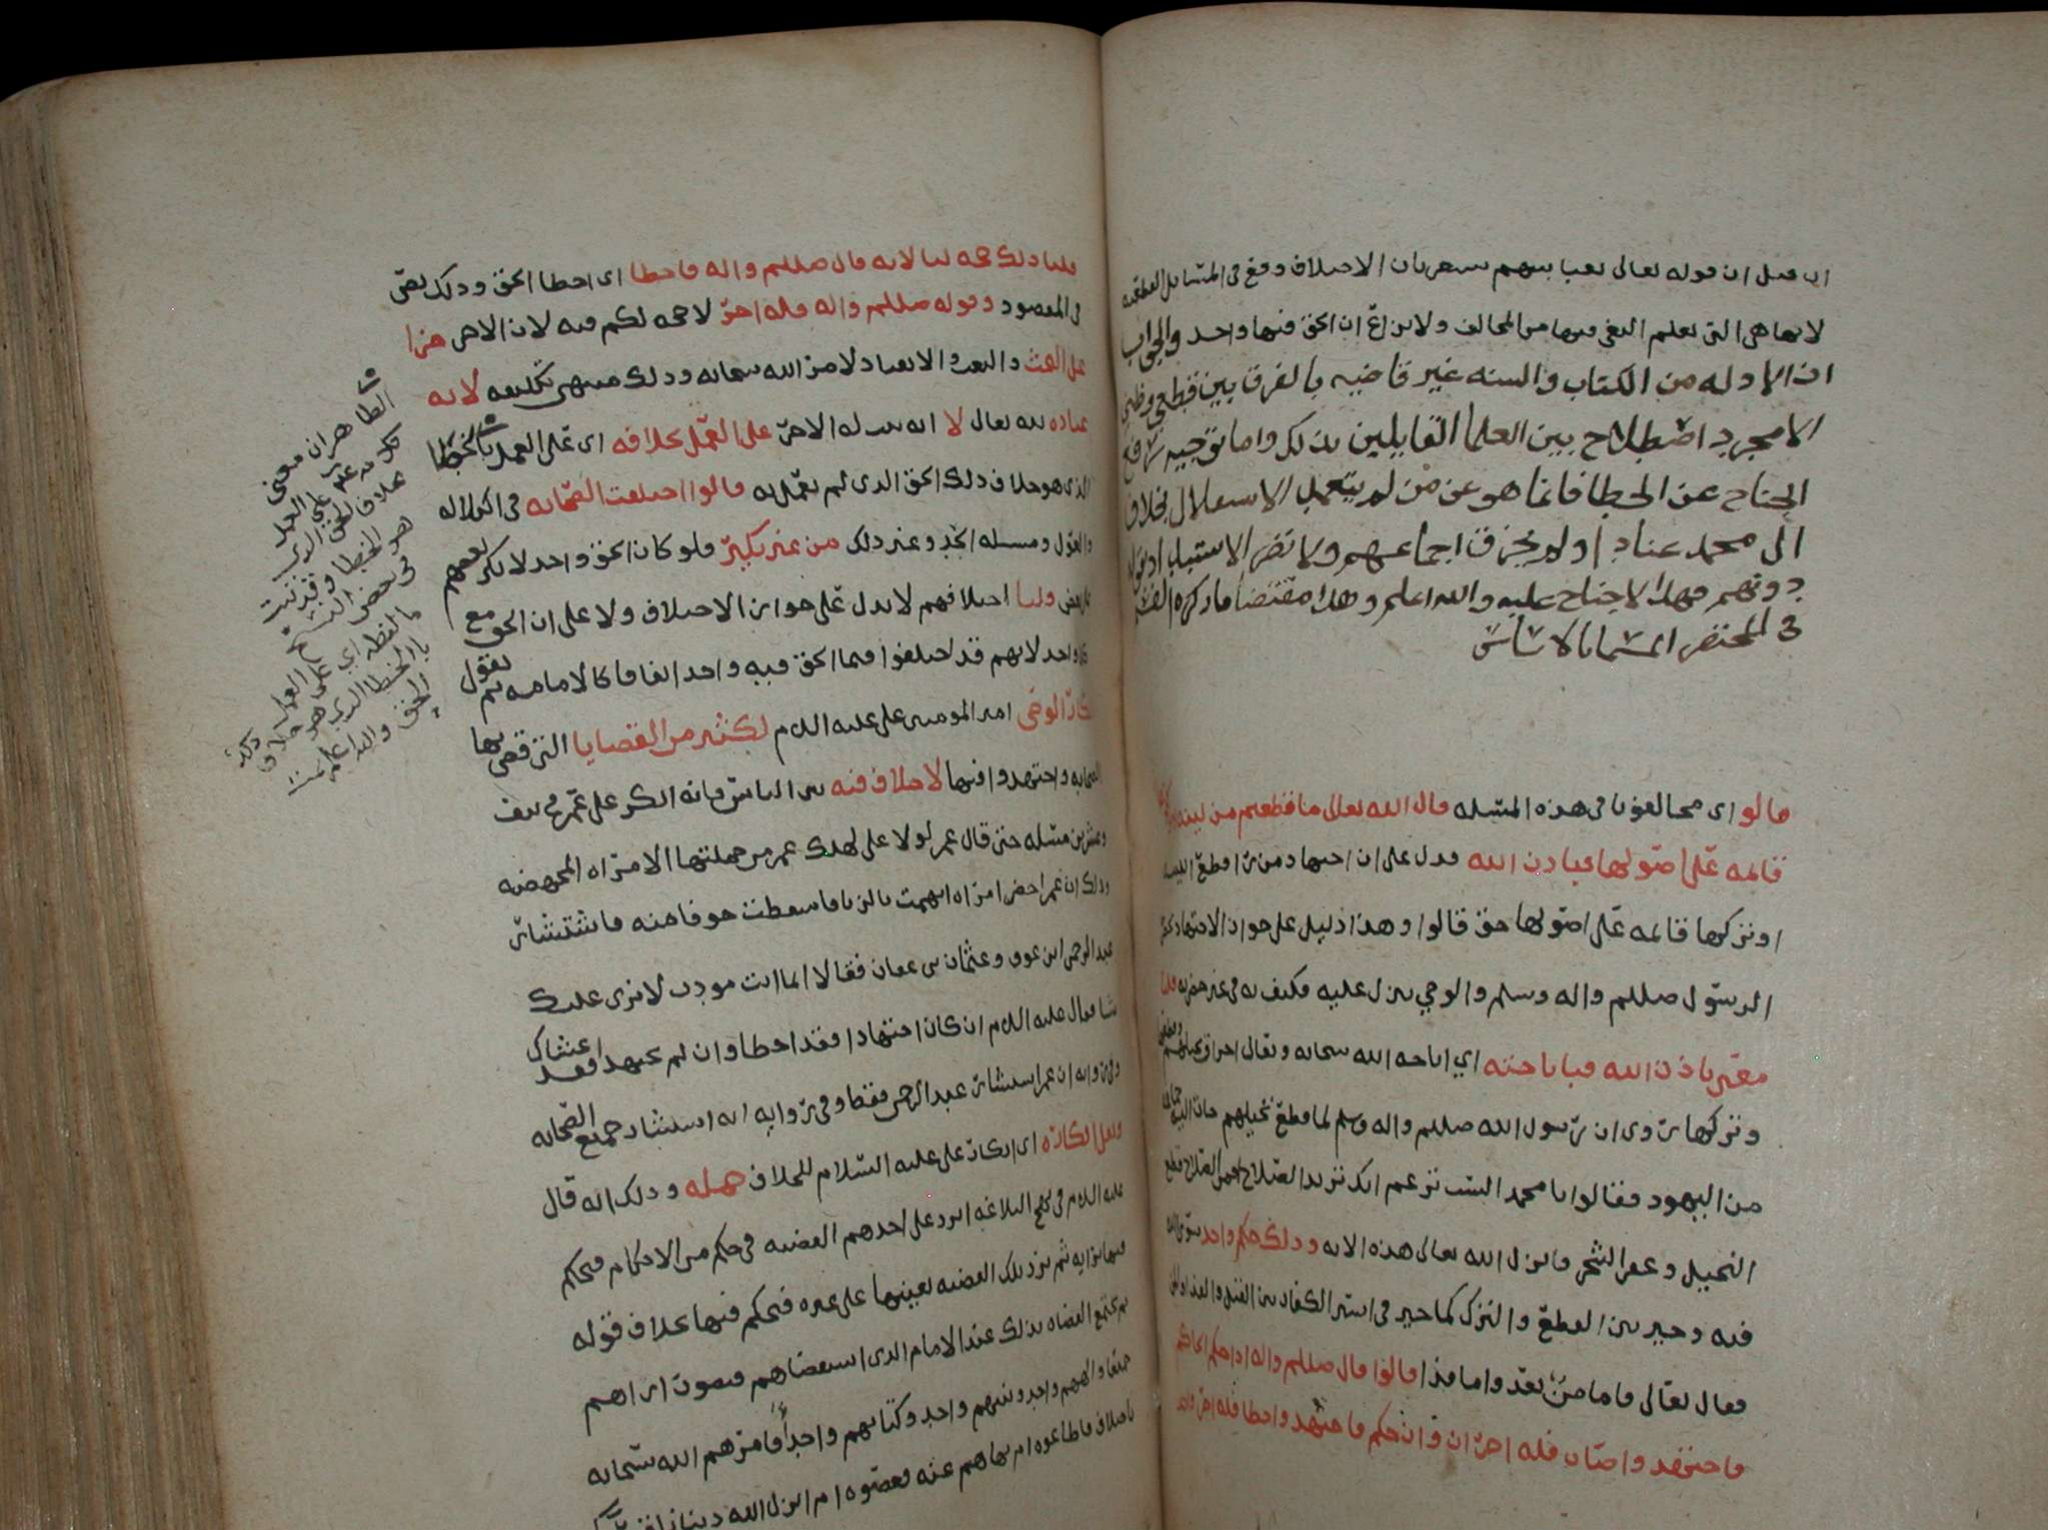 ان قيل ان قوله تعالى بغيا بينهم يشعر بان الاختلاف وقع في المسائل القطعيه
لانها هي التي يعلم البغي فيها من المخالف ولا نزاع ان الحق فيها واحد والجواب
ان الادله من الكتاب والسنه غير قاضيه بالفرق بين قطعي وظني
الا مجرد اصطلاح بين العلما القايلين بذلك واما توجيه رفع
الجناح عن الخطا فانما هو عن من لم يتعمد الاستقلال بخلاف
ال محمد عنادا ولم يخرق اجماعهم ولا تقض الاستبداد
دونهم فهذا لا جناح عليه والله اعلم وهذا مقتضا ما ذكره
في المختصر المسما بالاساس
قالوا اي مخالفونا في هذه المسئله قال الله تعالى ما قطعتم من لينه
قائمه على اصولها فباذن الله فدل على ان اجتهاد من راى قطع اللينه
او تركها قائمه على اصولها حق قالوا وهذا دليل على جواز الاجتهاد
الرسول صللم واله وسلم والوحي ينزل عليه فكيف به في غير حضرته قلنا
معنى باذن الله فباباحته اي اباحه الله سبحانه وتعالى احراق نخيلهم
وتركها روى ان رسول الله صللم واله وسلم لما قطع نخيلهم جات اليه
من اليهود فقالوا يا محمد الست تزعم انك تريد الصلاح افمن الصلاح قطع
النخيل وعقر الشجر فانزل الله تعالى هذه الايه وذلك حكم واحد
فيه وخير بين القطع والترك كما خير في اسر الكفار بين القتل والفدا
فقال تعالى فاما منا بعد واما فدا قالوا قال صللم واله اذا حكم الحاكم
فاجتهد واصاب فله اجران وان حكم فاجتهد واخطا فله اجر واحد
قلنا ذلك حجه لنا لانه قال صللم واله فاخطا اي اخطا الحق وذلك نص
في المقصود وقوله صللم واله فله اجر لا حجه لكم فيه لان الاجر هذا
على البحث والتعب والانقياد لامر الله سبحانه وذلك منتهى تكليفه لانه
عباده لله تعالى لا انه يثبت له الاجر على العمل بخلافه اي على العمل بالخطا
الذي هو خلاف ذلك الحق الذي لم يعمل به قالوا اختلفت الصحابه في الكلاله
والعول ومسئله الجد وغير ذلك من غير نكير فلو كان الحق واحد لانكر بعضهم
على بعض قلنا اختلافهم لا يدل على جواز الاختلاف ولا على ان الحق مع
كل واحد لانهم قد اختلفوا فيما الحق فيه واحد اتفاقا كالامامه ثم نقول
انكار الوصي امير المومنين علي عليه السلام لكثير من القضايا التي قضى بها
الصحابه واجتهدوا فيها لا خلاف فيه بين الناس فانه انكر على عمر في نيف
وعشرين مسئله حتى قال عمر لولا علي لهلك عمر من جملتها الامراه المجهضه
وذلك ان عمر احضر امراه اتهمت بالزنا فاسقطت خوفا منه فاستشار
عبد الرحمن ابن عوف وعثمان بن عفان فقالا انما انت مودب لا نرى عليك
شيا فقال عليه السلام ان كان اجتهادا فقد اخطا وان لم يجتهد فقد غشاك
وفي روايه ان عمر استشار عبد الرحمن فقط وفي روايه انه استشار جميع الصحابه
ونقل انكاره اي انكار علي عليه السلام للخلاف جمله وذلك انه قال
عليه السلام في نهج البلاغه ترد على احدهم القضيه في حكم من الاحكام فيحكم
فيها برايه ثم ترد تلك القضيه بعينها على غيره فيحكم فيها بخلاف قوله
ثم يجتمع القضاه بذلك عند الامام الذي استقضاهم فيصوب اراهم
جميعا والههم واحد ونبيهم واحد وكتابهم واحد أفامرهم الله سبحانه
بالاختلاف فاطاعوه ام نهاهم عنه فعصوه ام انزل الله دينا ناقصا
الظاهر ان معنى
كلامه عليه على العمل
بخلاف الحق الذي
هو الخطا وقد ثبت
في بعض النسخ
ما لفظه اي على العمل
بالخطا الذي هو خلاف ذلك
الحق والله اعلم